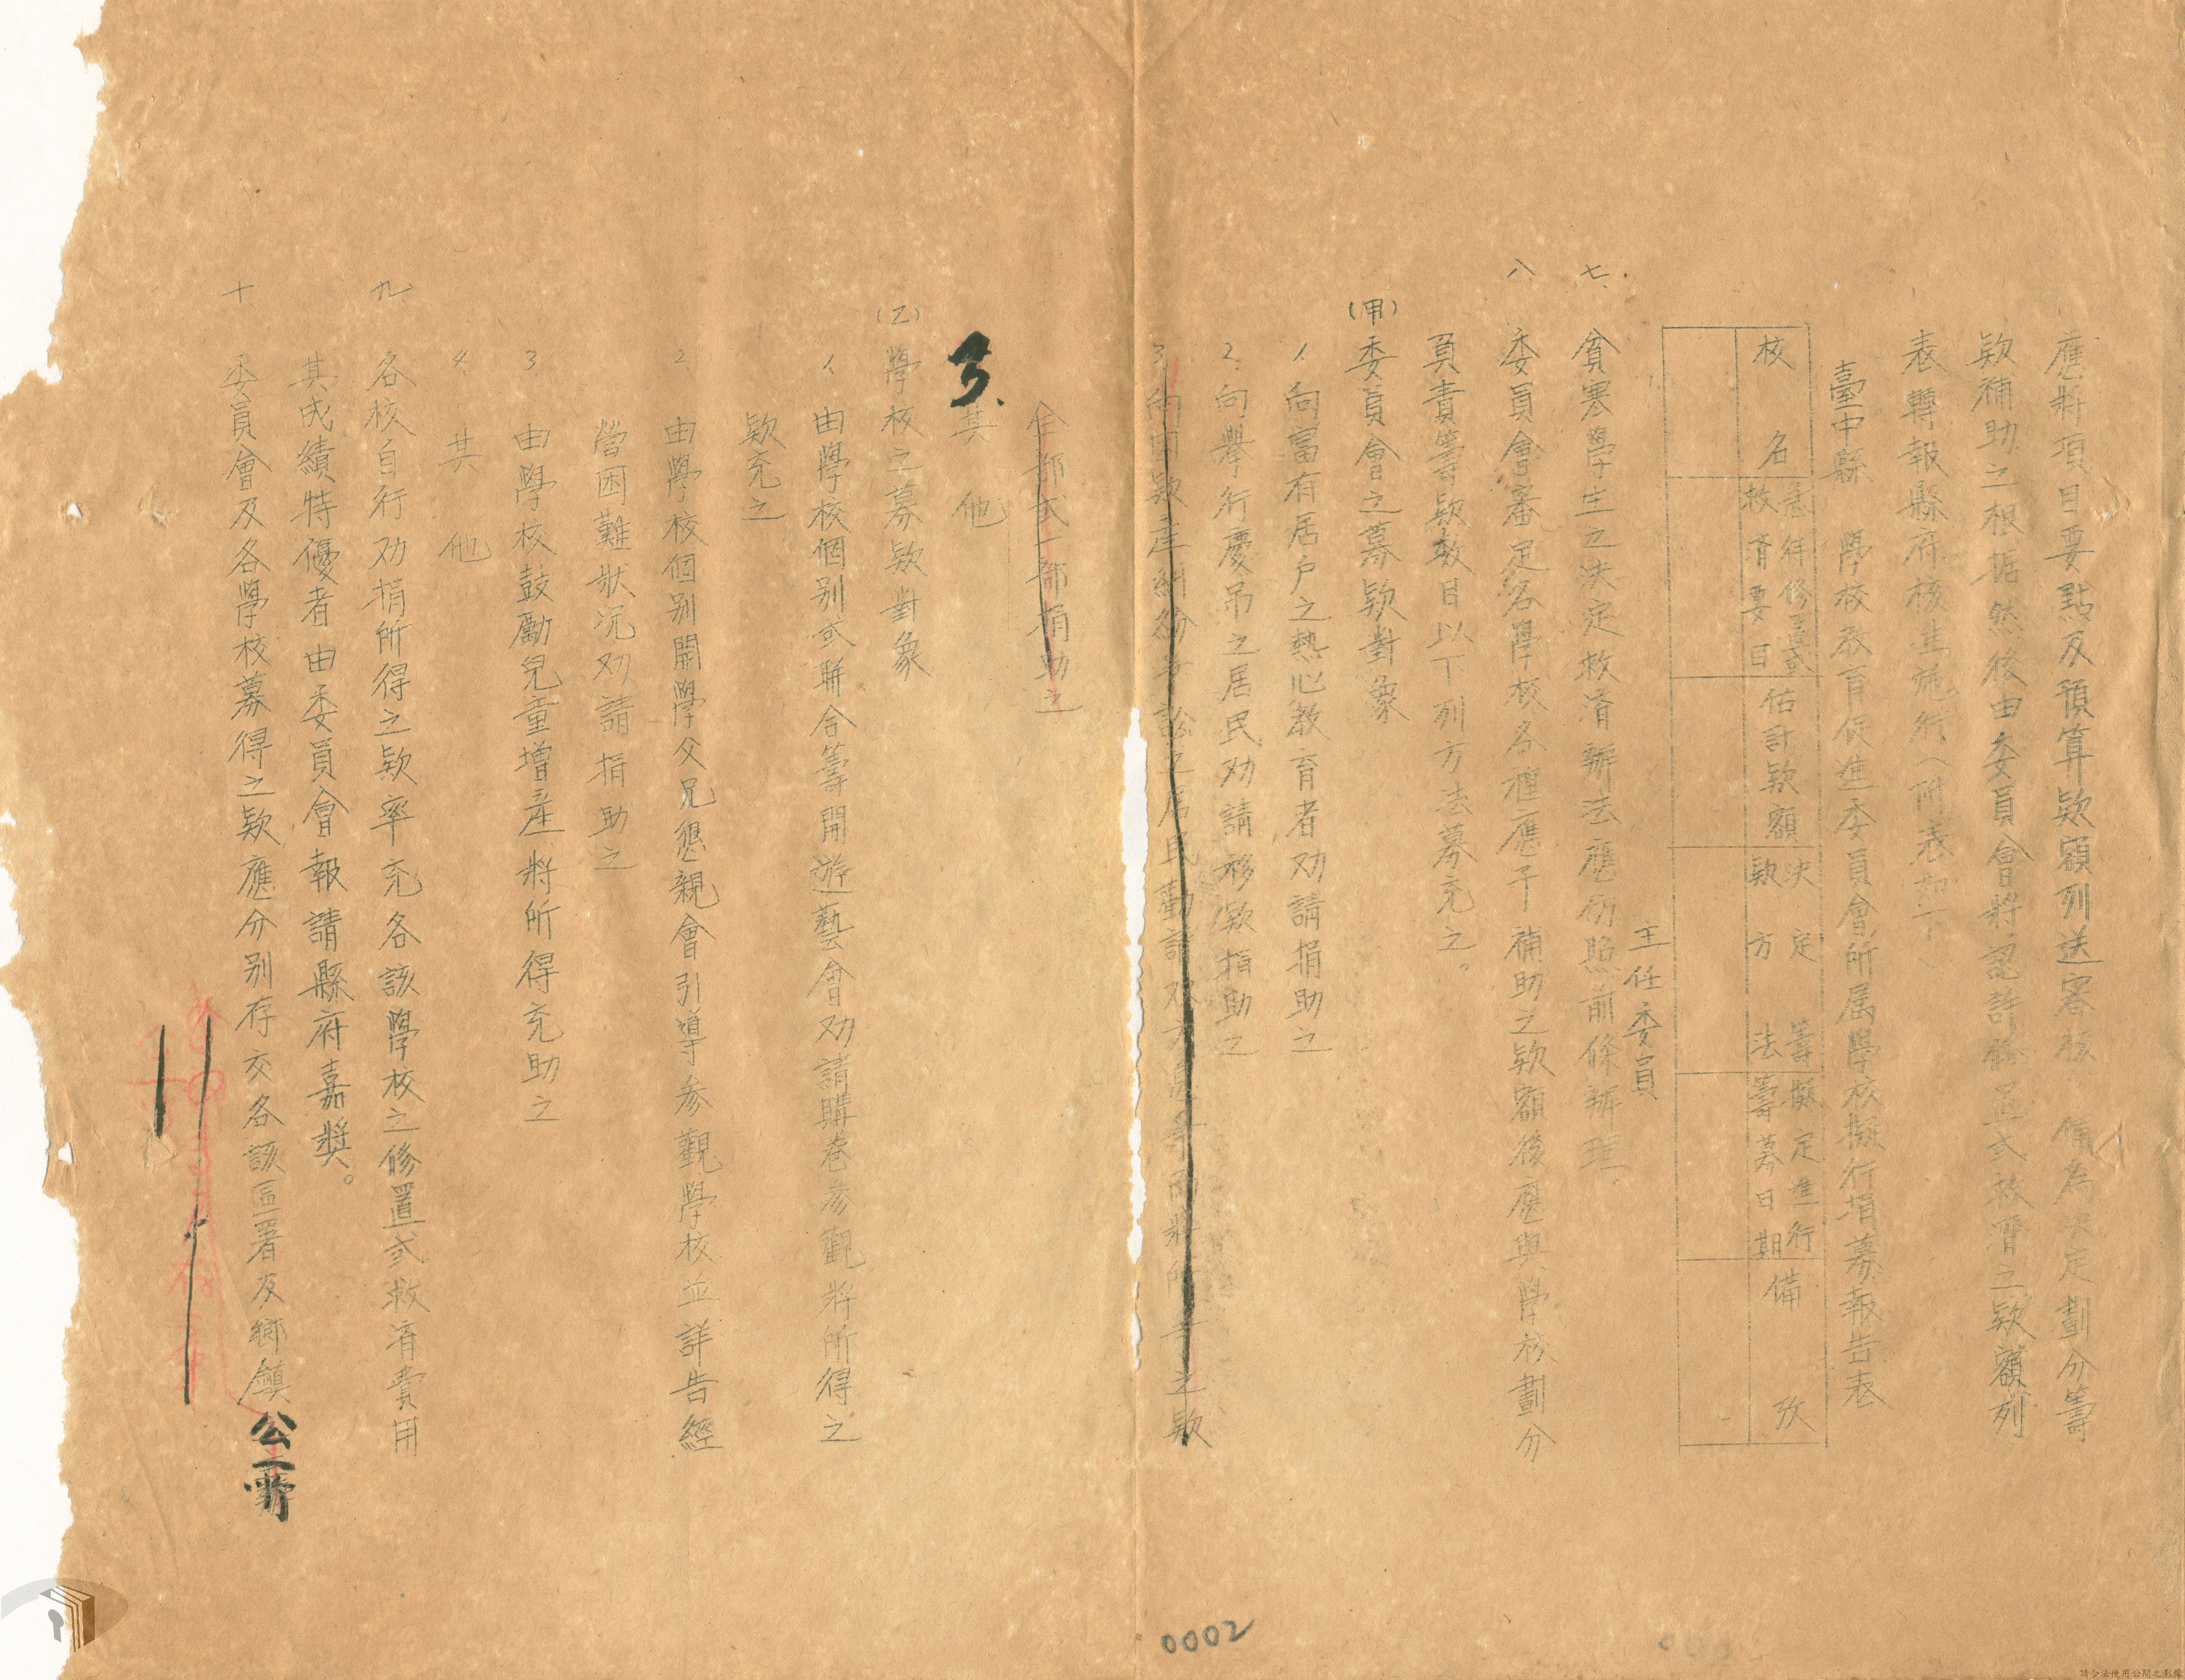 應將項目要點及預算欵額列送審核 備為决定劃分籌
欵補助之根据然後由委員會將認許修正式救濟之欵額列
表轉報縣府核准施行（附表如下）
臺中縣 學校教育促進委員會所属學校擬行捐募報告表
校名
急待修置或
救濟要目
估計欵額
决定籌
欵方法
擬定進行
籌募日期
備攷
主任委員
七、貧寒學生之決定救濟辦法應仿照前條辦理
八、委員會審定各學校各種應予補助之欵額後應與學校劃分
負責籌欵数目以下列方法募充之。
（甲）委員會之募欵對象
1、向富有居户之熱心教育者劝請捐助之
2、向舉行慶吊之居民劝請移欵捐助之
3、向因欵產糾紛爭訟之居民勸請双方 之欵
全部或一部捐助之
3、其他
（乙）學校之募欵對象
1、由學校個别或聯合籌開遊藝會劝請購卷参觀將所得之
欵充之
2 由學校個别開學父兄懇親會引導参觀學校並詳告經
營困難狀况劝請捐助之
3 由學校鼓勵兒童增產將所得充助之
4、其他
九、各校自行劝捐所得之欵率充各該學校之修置或救濟費用
其成績特優者由委員會報請縣府嘉獎。
十、委員會及各學校募得之欵應分别存交各該區署及鄉鎮公所
0002
請合法使用公開之影像